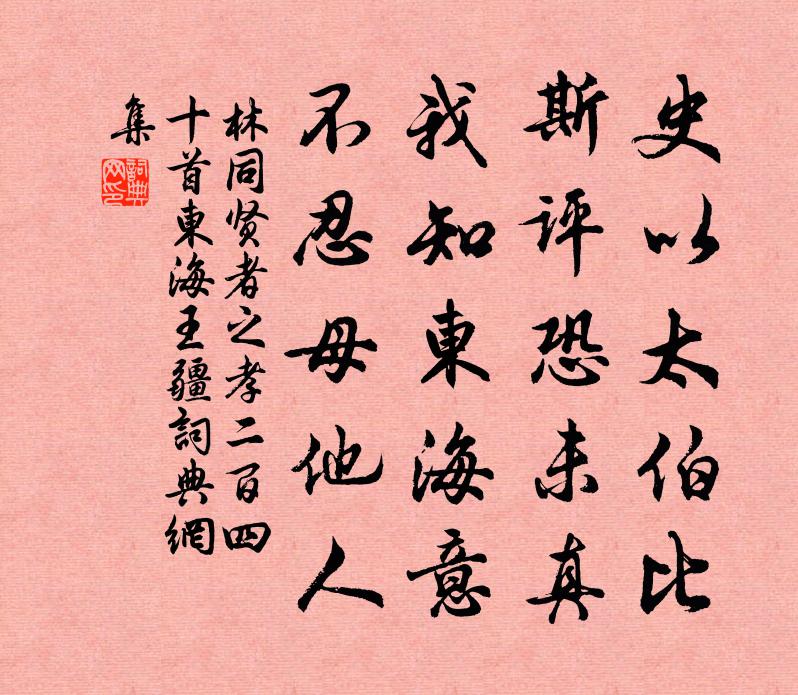 史以太伯比
斯评恐未真
我知東海意
不忍母他人
林同贤者之孝二百四
十首東海王疆詞典網
集
詞典網印